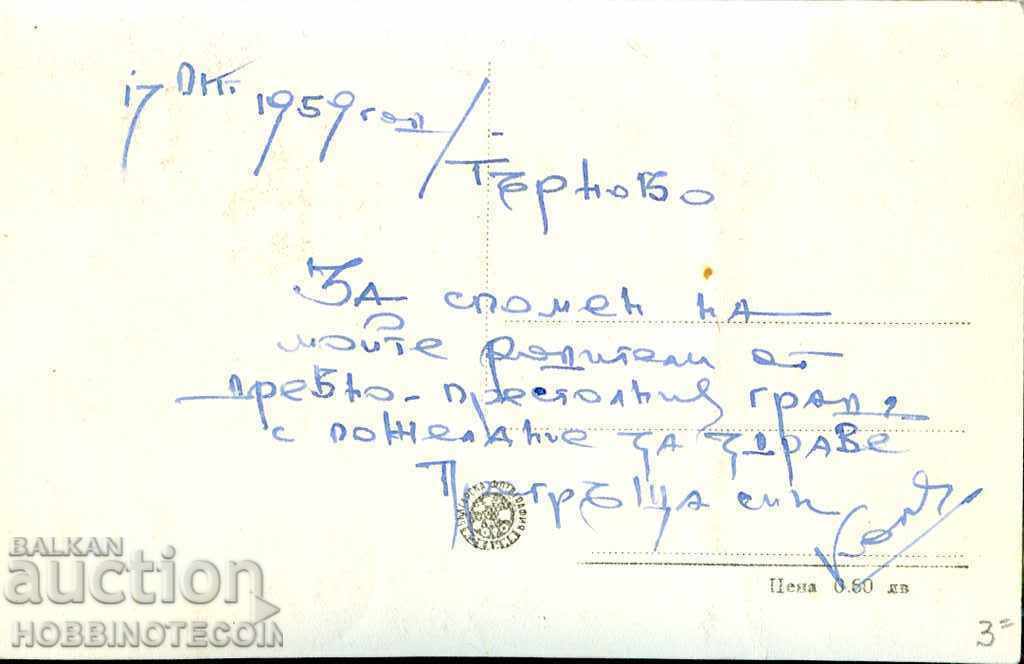 17 ОК. 1959 год /
Търново
За спомен на
моите родители от
древно-престолния град,
с пожелание за здраве
син
Цена 0.80 лв
3=
BALKAN
auction
HOBBINOTECOIN